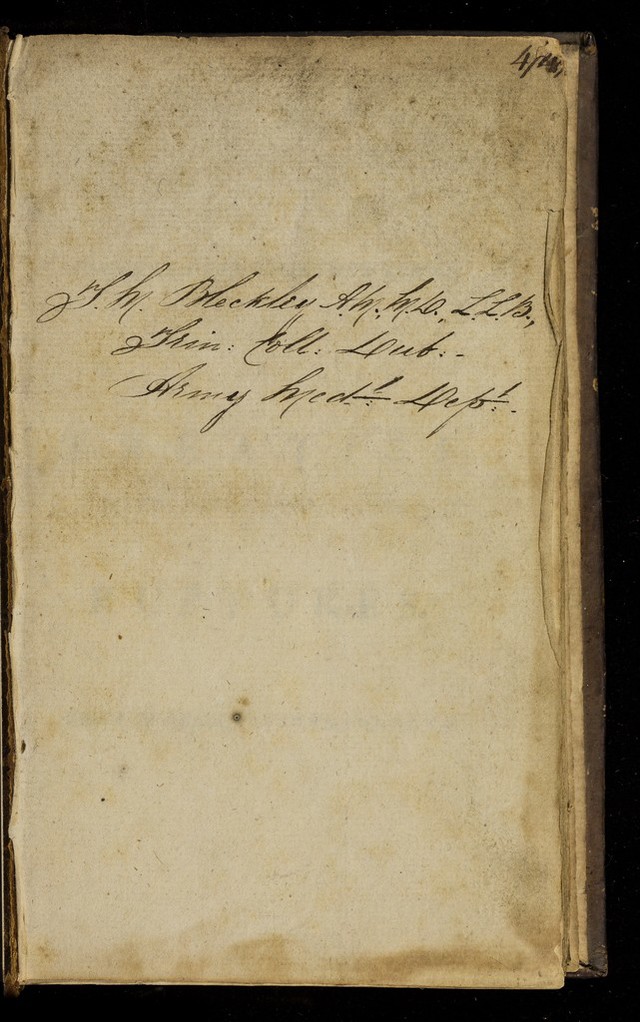 T. M. Bleckley A.M. M.D., L.L.B.,
Trin: Coll: Dub:-
Army Medl: Dept:-